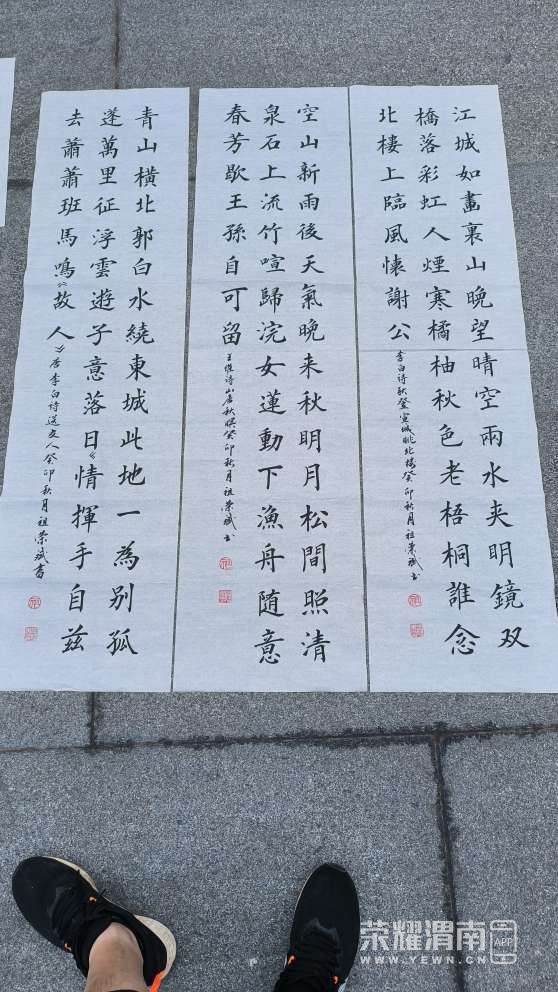 江城如畫裏山晚望晴空兩水夹明鏡双
橋落彩虹人煙寒橘柚秋色老梧桐誰念
北樓上臨風懷謝公
李白诗秋登宣城眺北楼癸卯秋月祖荣斌书
空山新雨後天氣晚来秋明月松間照清
泉石上流竹喧歸浣女蓮動下漁舟隨意
春芳歇王孫自可留
王维诗山居秋暝癸卯秋月祖荣斌书
青山横北郭白水繞東城此地一為别孤
蓬萬里征浮雲遊子意落日情揮手自兹
去蕭蕭班馬鳴故人
唐李白诗送友人癸卯秋月祖荣斌書
荣耀渭南 APP
WWW.YEWN.CN